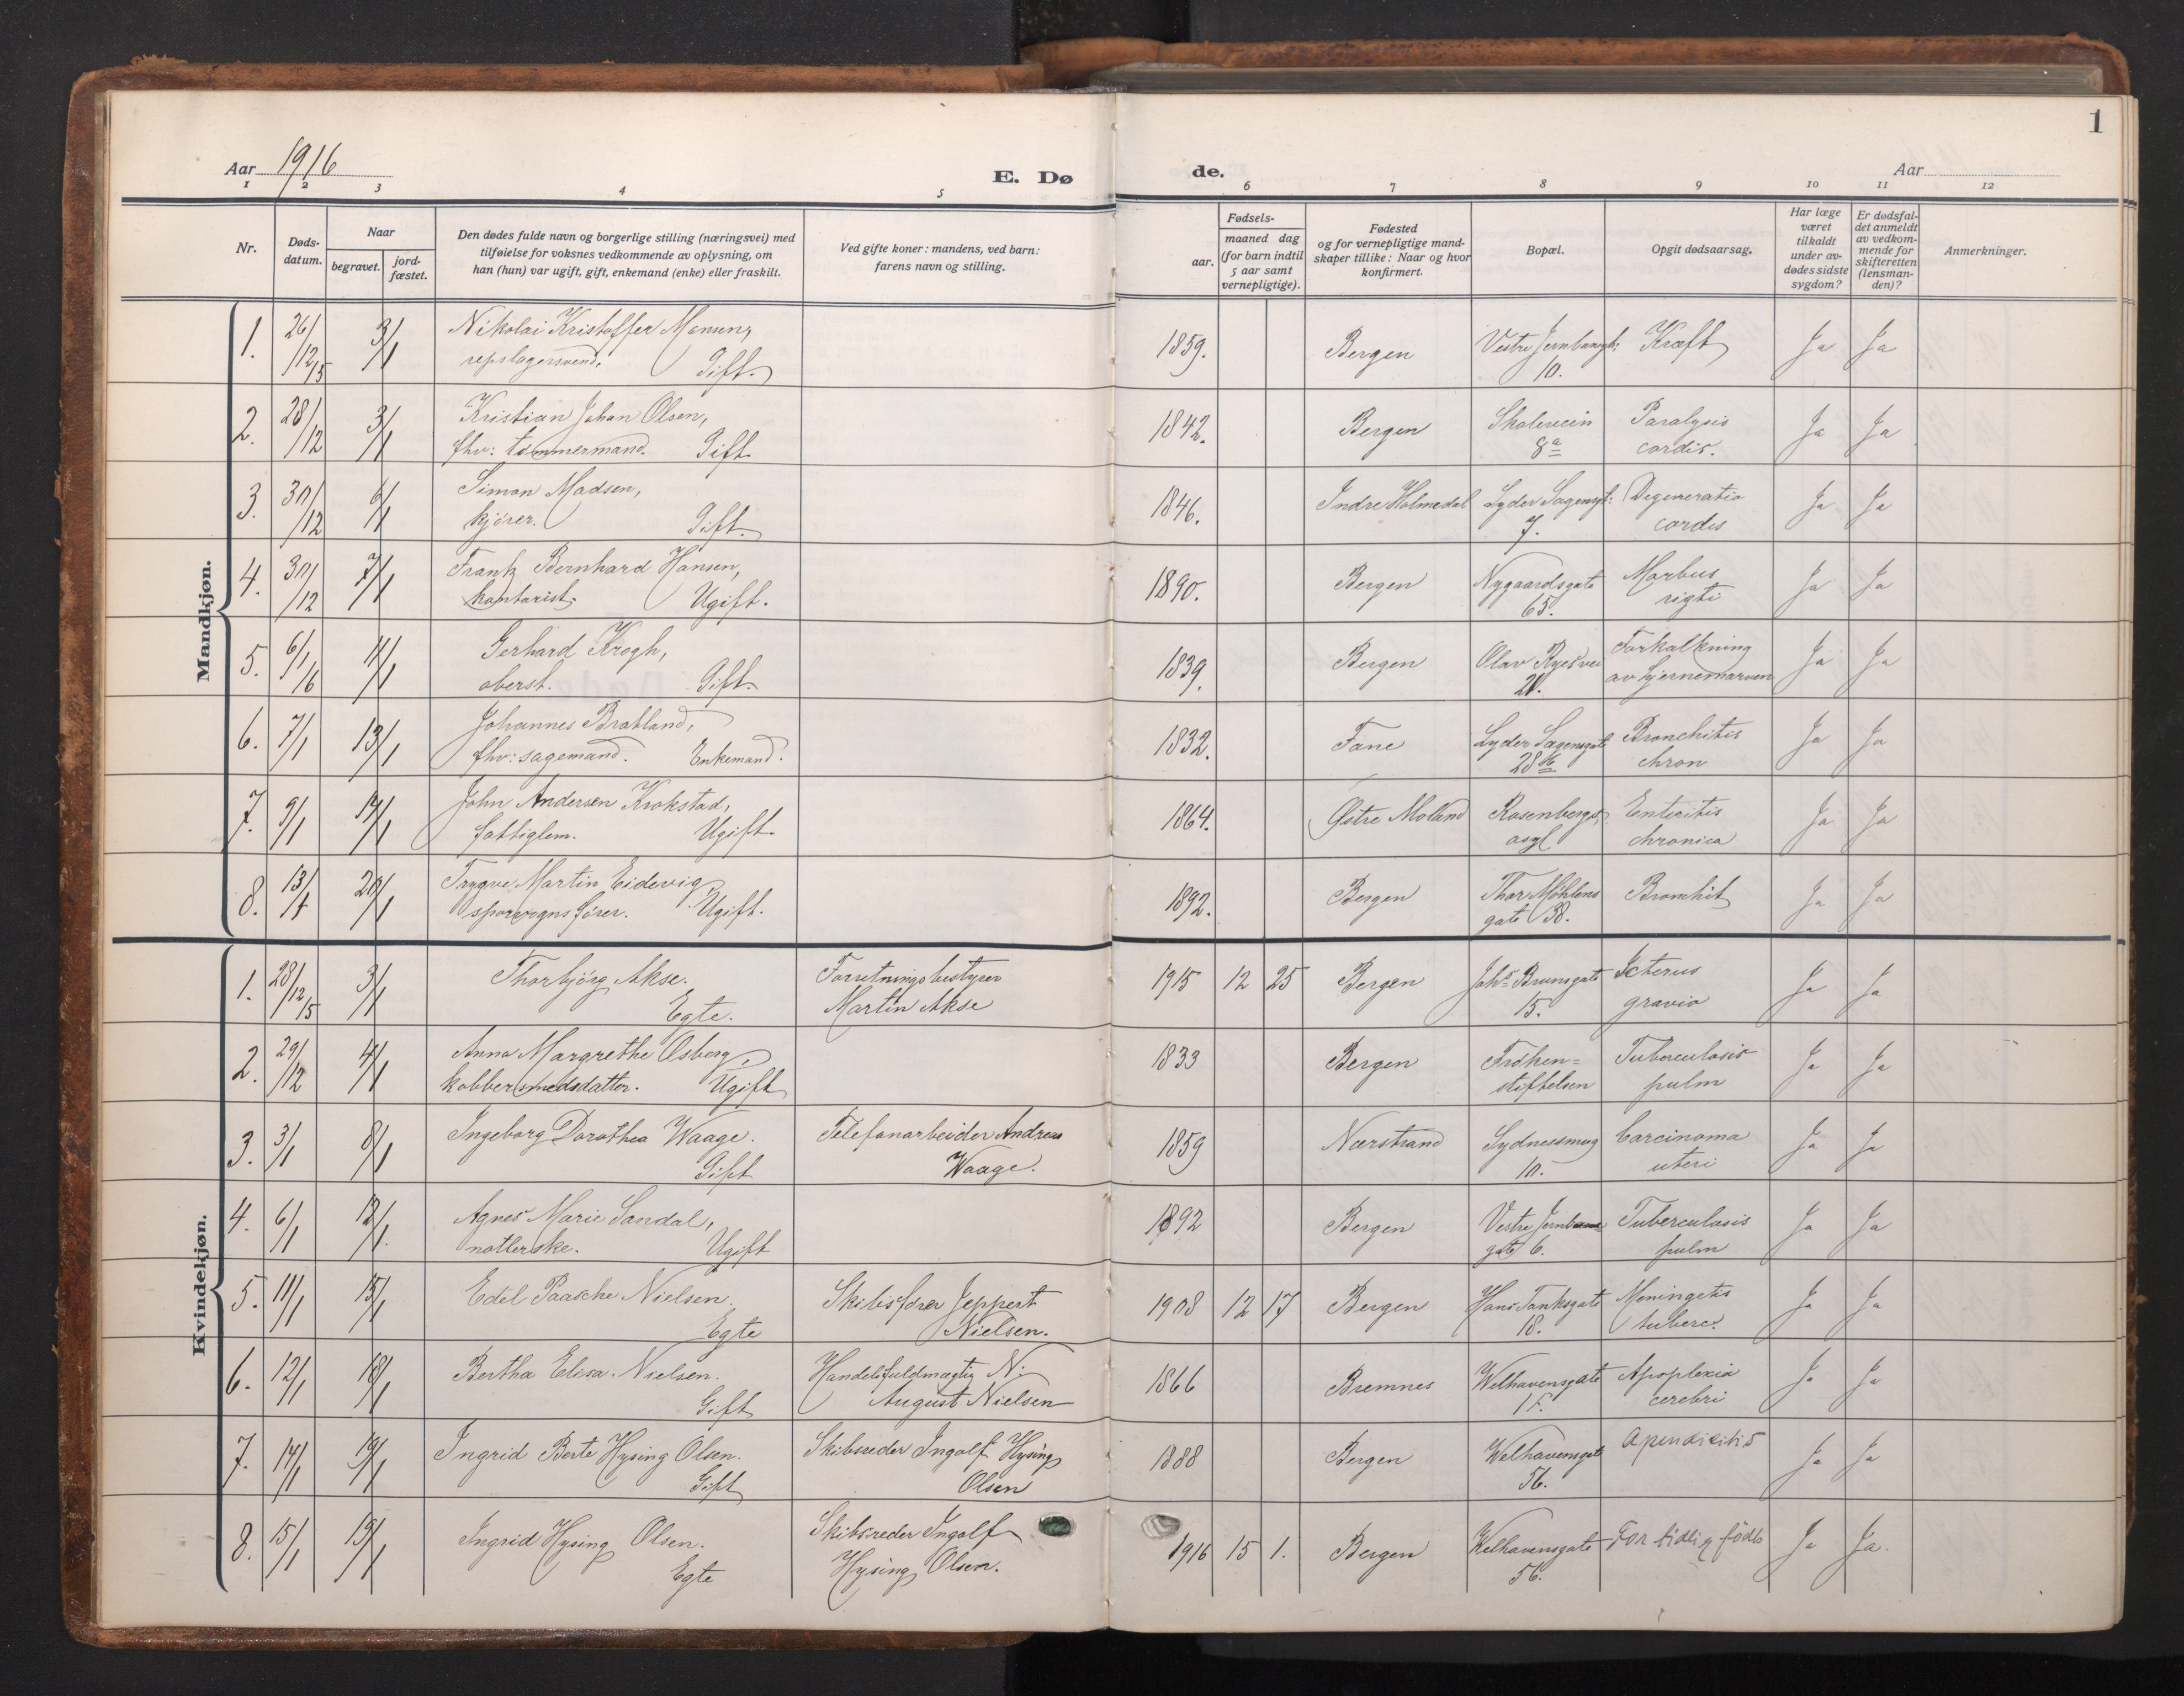 1
Aar 1916
E. Dø
de.
Aar
1 2 3 4 5 6 7 8 9 10 11 12
Nr.
Døds-
datum.
Naar
begravet.
jord-
fæstet.
Den dødes fulde navn og borgerlige stilling (næringsvei) med
tilføielse for voksnes vedkommende av oplysning, om
han (hun) var ugift, gift, enkemand (enke) eller fraskilt.
Ved gifte koner: mandens, ved barn:
farens navn og stilling.
Fødsels-
aar.
maaned dag
(for barn indtil
5 aar samt
vernepligtige).
Fødested
og for vernepligtige mand-
skaper tillike: Naar og hvor
konfirmert.
Bopæl.
Opgit dødsaarsag.
Har læge
været
tilkaldt
under av-
dødes sidste
sygdom?
Er dødsfal-
det anmeldt
av vedkom-
mende for
skifteretten
(lensman-
den)?
Anmerkninger.
Mandkjøn.
1. 26/12 15 3/1 Nikolai Kristoffer Monsen, 1859. Bergen Vestre Jernbanegt: Kræft Ja Ja
repslagersvend. Gift. 10.
2. 28/12 3/1 Kristian Johan Olsen, 1842. Bergen Skoleveien Paralysis Ja Ja
fhv: tømmermand. Gift. 8a cordis.
3. 30/12 6/1 Simon Madsen, 1846. Indre Holmedal Lyder Sagensgt: Degeneratio Ja Ja
kjører. Gift. 7. cordis
4. 30/12 7/1 Frank Bernhard Hansen, 1890. Bergen Nygaardsgate Morbus Ja Ja
kontorist. Ugift. 65. rigti
5. 6/1 16 11/1 Gerhard Krogh, 1839. Bergen Olav Ryesvei Forkalkning Ja Ja
oberst. Gift. av hjernemarven
6. 7/1 13/1 Johannes Bratland, 1832. Fane Lyder Sagensgate Bronchitis Ja Ja
fhv: sagemand. Enkemand. 28 chron
7. 9/1 14/1 John Andersen Krokstad, 1864. Østre Moland Rosenbergs Enteritis Ja Ja
fattiglem. Ugift. asyl chronica
8. 13/1 20/1 Trygve Martin Eidevig, 1892. Bergen Thor Møhlens Bronchit Ja Ja
sporvognsfører. Ugift. gate 38.
Kvindekjøn.
1. 28/12 15 3/1 Thorbjørg Akse. Forretningsbestyrer 1915 12 25 Bergen Johs Brunsgate Icterus Ja Ja
Egte. Martin Akse 15. gravis
2. 29/12 4/1 Anna Margrethe Osberg, 1833 Bergen Frøken= Tuberculosis Ja Ja
kobbersmedsdatter. Ugift stiftelsen pulm
3. 3/1 8/1 Ingeborg Dorothea Waage. Telefonarbeider Andreas 1859 Nærstrand Sydnessmug Carcinoma Ja Ja
Gift Waage. 10. uteri
4. 6/1 12/1 Agnes Marie Sandal, 1892 Bergen Vestre Jernbane Tuberculosis Ja Ja
notlerske. Ugift gate 6. pulm
5. 11/1 15/1 Edel Paasche Nielsen. Skibsfører Jeppert 1908 12 17 Bergen Hans Tanksgate Meningetis Ja Ja
Egte Nielsen. 18. tuberc.
6. 12/1 18/1 Bertha Elisa Nielsen. Handelsfuldmægtig N. 1866 Bremnes Welhavensgate Apoplexia Ja Ja
Gift August Nielsen cerebri
7. 14/1 19/1 Ingrid Berte Hysing Olsen. Skibsreder Ingolf Hysing 1888 Bergen Welhavensgate Apendicitis Ja Ja
Gift Olsen 56.
8. 15/1 19/1 Ingrid Hysing Olsen. Skibsreder Ingolf 1916 15 1. Bergen Welhavensgate For tidlig født Ja Ja.
Egte Hysing Olsen. 56.